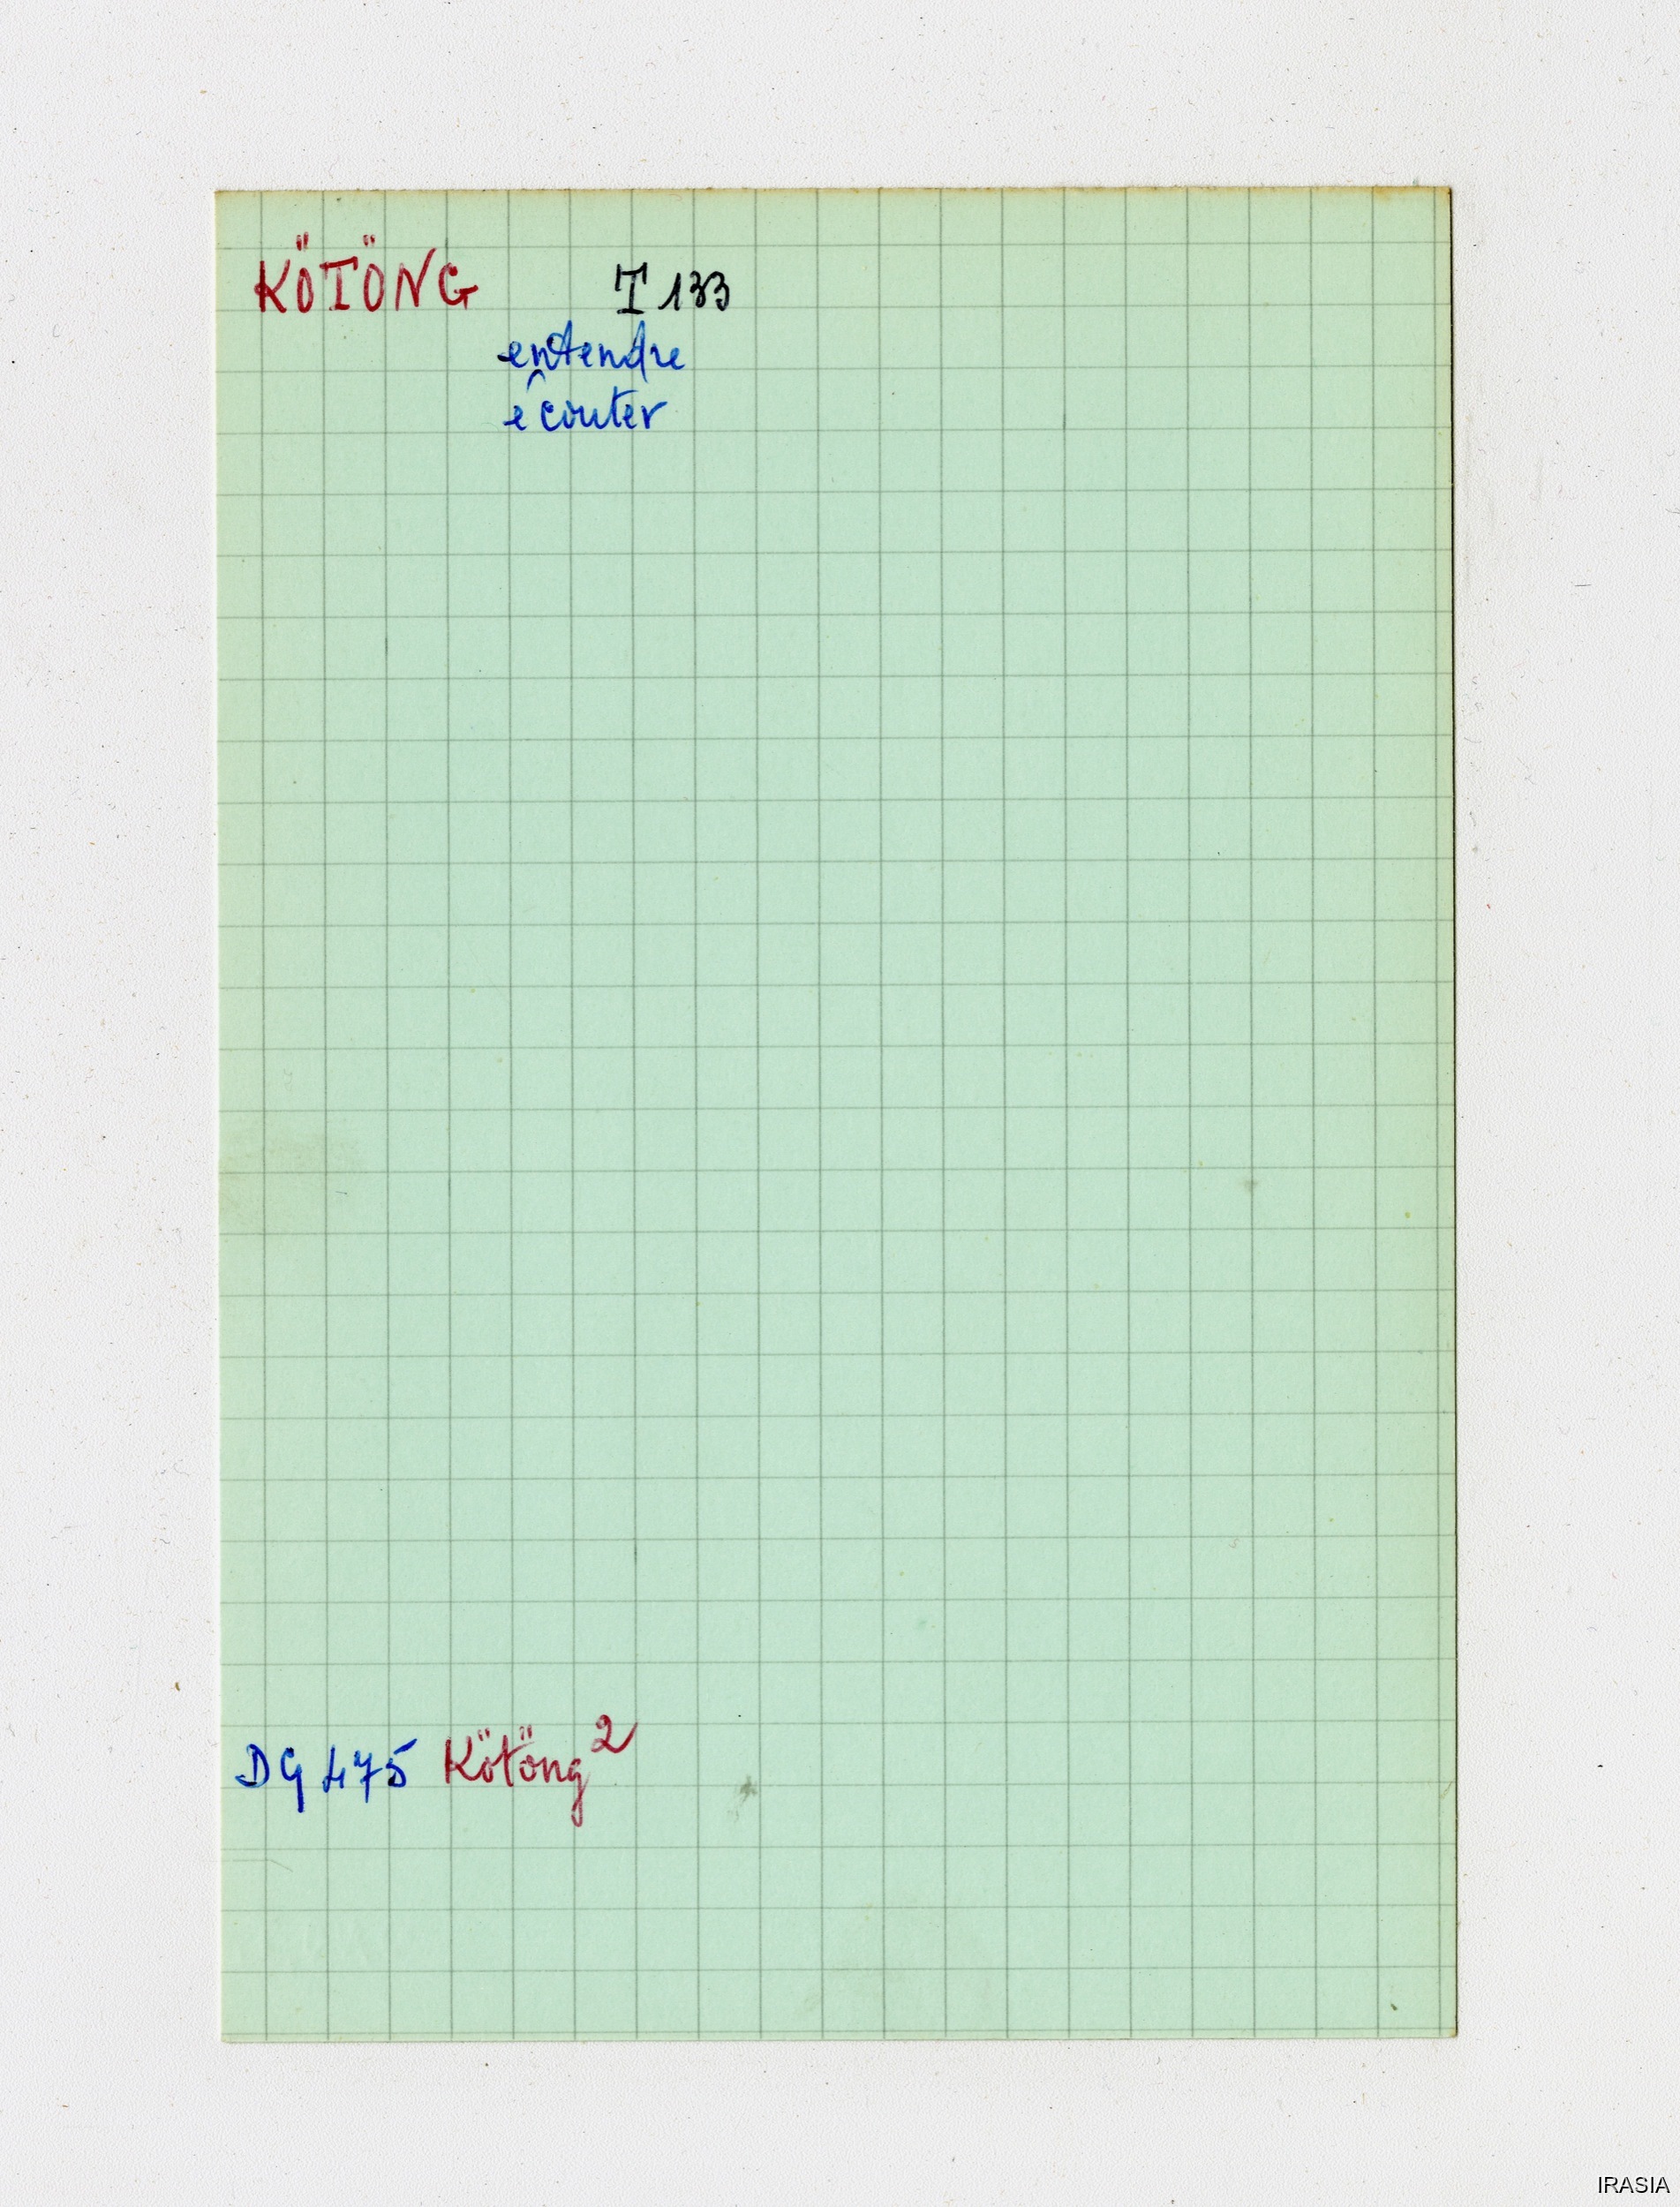 KÖTÖNG T 133
entendre
écouter
DG 475 Kötöng²
IRASIA